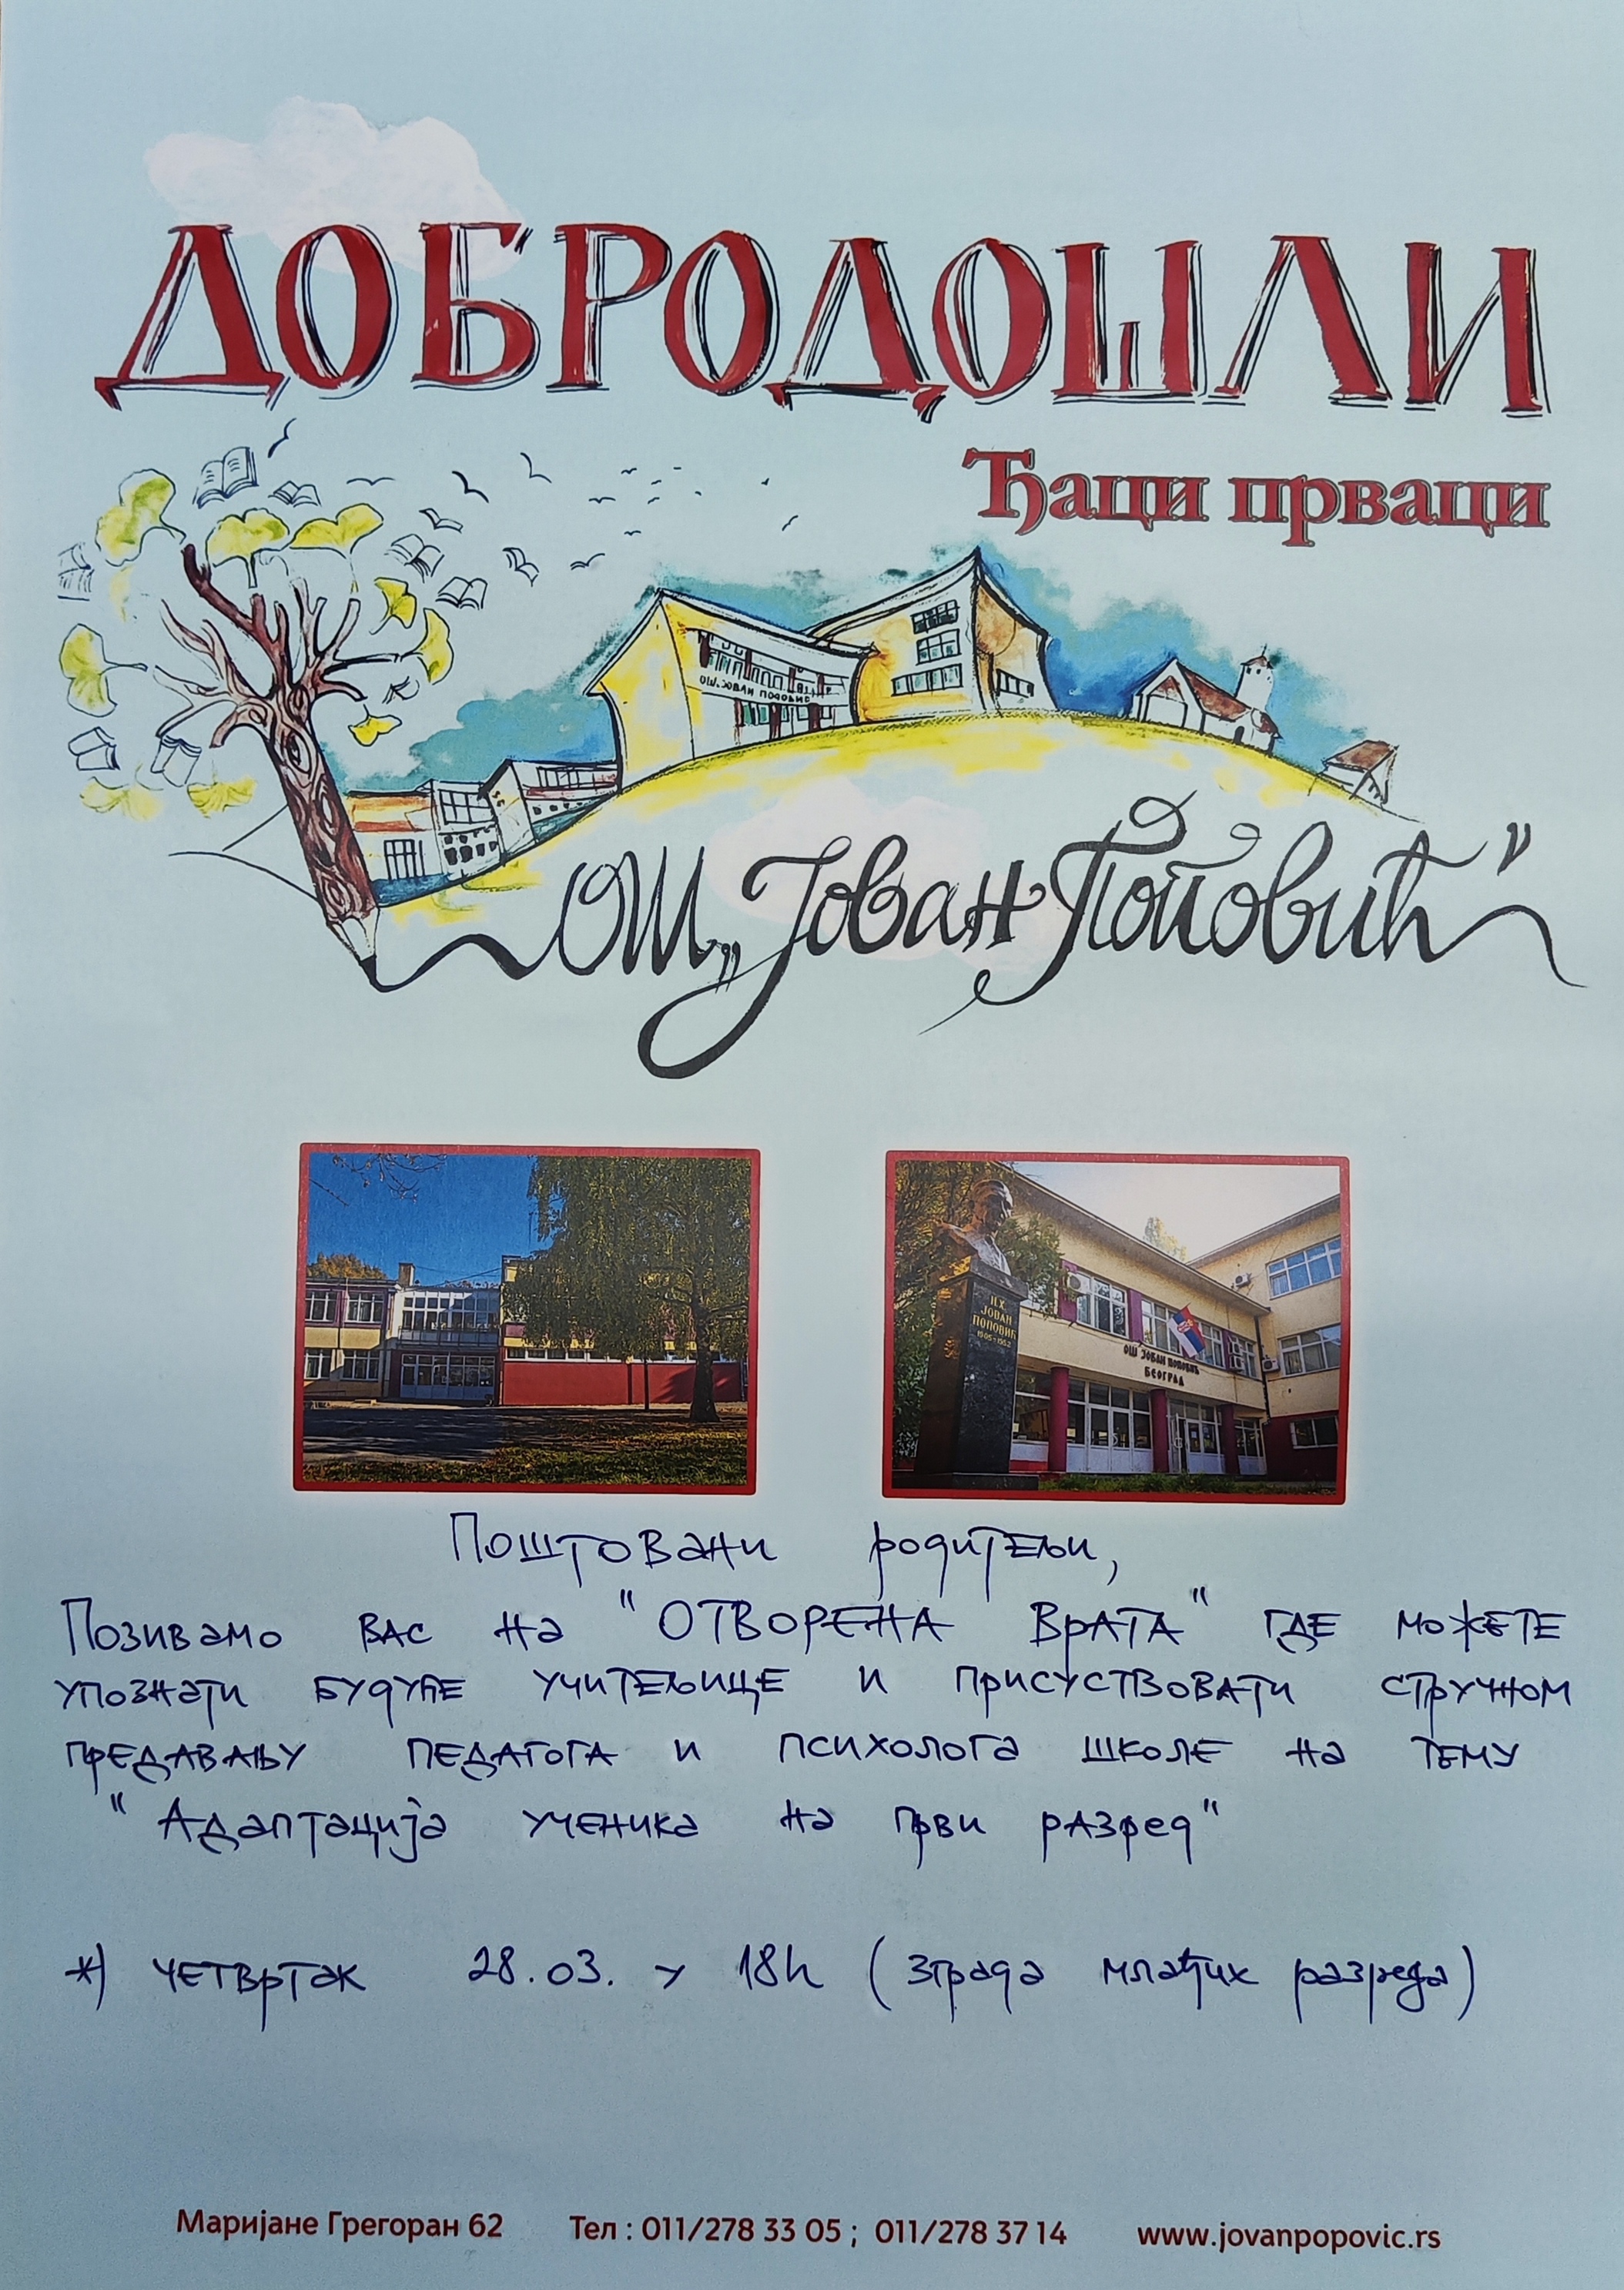 ДОБРОДОШЛИ
Ђаци прваци
ОШ „Јован Поповић"
ЈОВАН
ПОПОВИЋ
ОШ ЈОВАН ПОПОВИЋ
БЕОГРАД
Поштовани родитељи,
Позивамо вас на "ОТВОРЕНА ВРАТА" где можете
упознати будуће учитељице и присуствовати стручном
предавању педагога и психолога школе на тему
"Адаптација ученика на први разред"
*) четвртак 28.03. у 18h (зграда млађих разреда)
Маријане Грегоран 62 Тел : 011/278 33 05 ; 011/278 37 14 www.jovanpopovic.rs